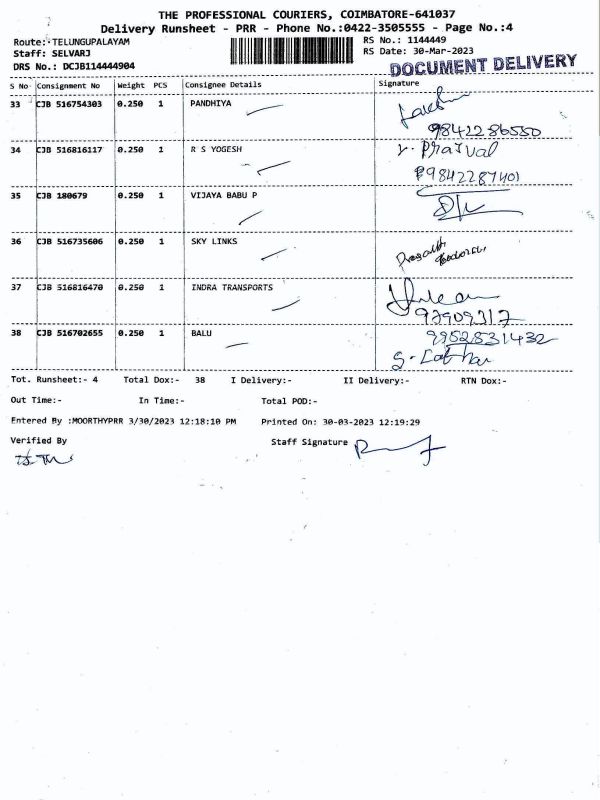 THE PROFESSIONAL COURIERS, COIMBATORE-641037
Delivery Runsheet - PRR - Phone No.:0422-3505555 - Page No.:4
Route: TELUNGUPALAYAM
Staff: SELVARJ
DRS No.: DCJB114444904
RS No.: 1144449
RS Date: 30-Mar-2023
DOCUMENT DELIVERY
S No Consignment No Weight PCS Consignee Details Signature
33 CJB 516754303 0.250 1 PANDHIYA
9842286550
34 CJB 516816117 0.250 1 R S YOGESH
9842287401
35 CJB 180679 0.250 1 VIJAYA BABU P
36 CJB 516735606 0.250 1 SKY LINKS
37 CJB 516816470 0.250 1 INDRA TRANSPORTS
38 CJB 516702655 0.250 1 BALU
9952831432
Tot. Runsheet:- 4 Total Dox:- 38 I Delivery:- II Delivery:- RTN Dox:-
Out Time:- In Time:- Total POD:-
Entered By :MOORTHYPRR 3/30/2023 12:18:10 PM Printed On: 30-03-2023 12:19:29
Verified By Staff Signature